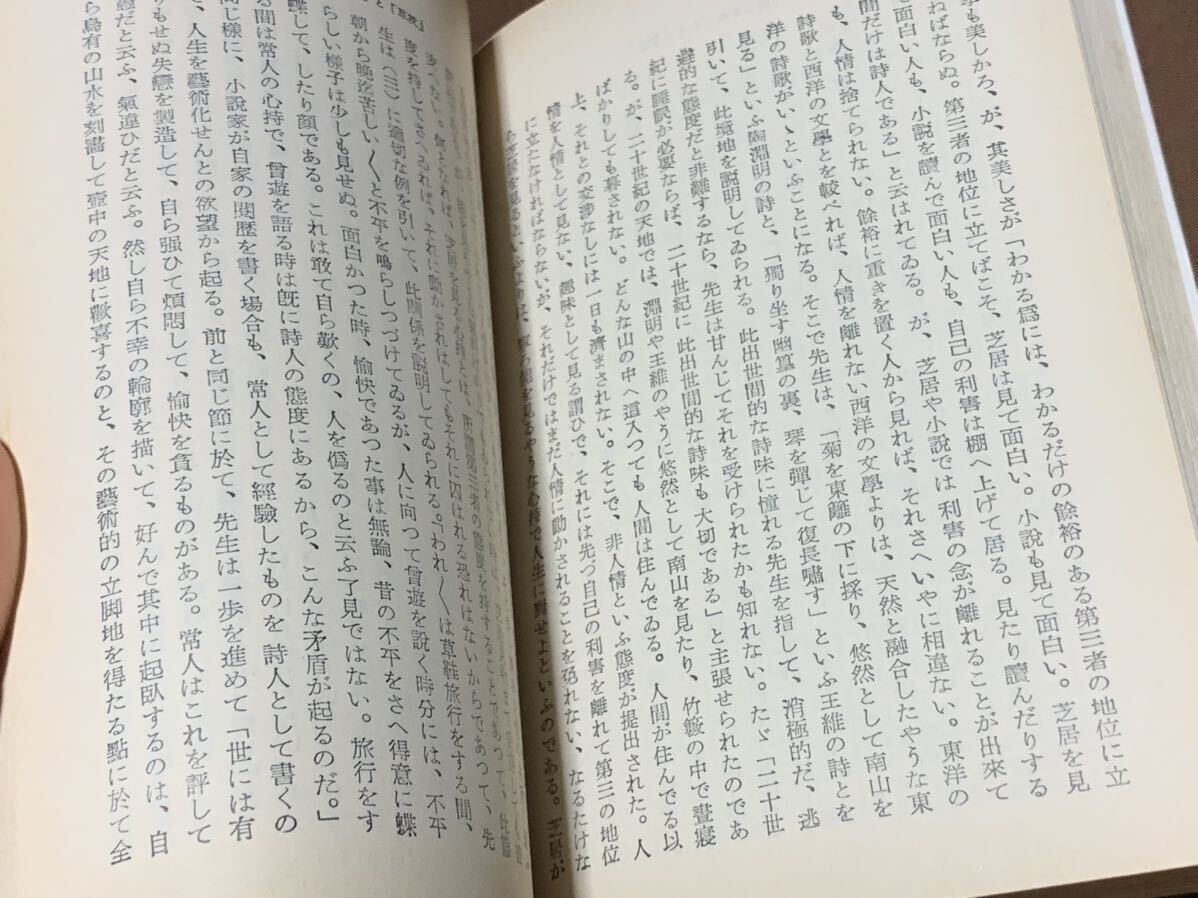 事も美しかろ、が、其美しさが「わかる爲には、わかるだけの餘裕のある第三者の地位に立
ねばならぬ。第三者の地位に立てばこそ、芝居は見て面白い。小説も見て面白い。芝居を見
て面白い人も、小説を讀んで面白い人も、自己の利害は棚へ上げて居る。見たり讀んだりする
間だけは詩人である」と云はれてゐる。が、芝居や小説では利害の念が離れることが出來て
も、人情は捨てられない。餘裕に重きを置く人から見れば、それさへいやに相違ない。東洋の
詩歌と西洋の文學とを較べれば、人情を離れない西洋の文學よりは、天然と融合したやうな東
洋の詩歌がいゝといふことになる。そこで先生は、「菊を東籬の下に採り、悠然として南山を
見る」といふ陶淵明の詩と、「獨り坐す幽篁の裏、琴を彈じて復長嘯す」といふ王維の詩とを
引いて、此境地を説明してゐられる。此出世間的な詩味に憧れる先生を指して、消極的だ、逃
避的な態度だと非難するなら、先生は甘んじてそれを受けられたかも知れない。たゞ「二十世
紀に睡眠が必要ならば、二十世紀に此出世間的な詩味も大切である」と主張せられたのであ
る。が、二十世紀の天地では、淵明や王維のやうに悠然として南山を見たり、竹籔の中で晝寝
ばかりしても暮されない。どんな山の中へ這入つても人間は住んでゐる。人間が住んでる以
上、それとの交渉なしには一日も濟まされない。そこで、非人情といふ態度が提出された。人
情を人情として見ない、趣味として見る謂ひで、それには先づ自己の利害を離れて第三の地位
に立たなければならないが、それだけではまだ人情に動かされることを免れない、なるたけな
心持で人生に對せよといふのである。芝居が
と「草枕」
度を持してさへゐれば、それに動かされはしてもそれに囚はれる恐れはないからであつて、先
生は(三)に適切な例を引いて、此關係を説明してゐられる。「われ〳〵は草鞋旅行をする間、
朝から晩迄苦しい〳〵と不平を鳴らしつづけてゐるが、人に向つて曾遊を説く時分には、不平
らしい樣子は少しも見せぬ。面白かつた時、愉快であつた事は無論、昔の不平をさへ得意に蝶
喋して、したり顔である。これは敢て自ら歎くの、人を僞るのと云ふ了見ではない。旅行をす
る間は常人の心持で、曾遊を語る時は旣に詩人の態度にあるから、こんな矛盾が起るのだ。」
同じ樣に、小説家が自家の閲歷を書く場合も、常人として經驗したものを詩人として書くの
で、人生を藝術化せんとの欲望から起る。前と同じ節に於て、先生は一歩を進めて「世には有
りもせぬ失戀を製造して、自ら强ひて煩悶して、愉快を貪るものがある。常人はこれを評して
愚だと云ふ、氣違ひだと云ふ。然し自ら不幸の輪廓を描いて、好んで其中に起臥するのは、自
ら烏有の山水を刻畫して壺中の天地に歡喜するのと、その藝術的の立脚地を得たる點に於て全